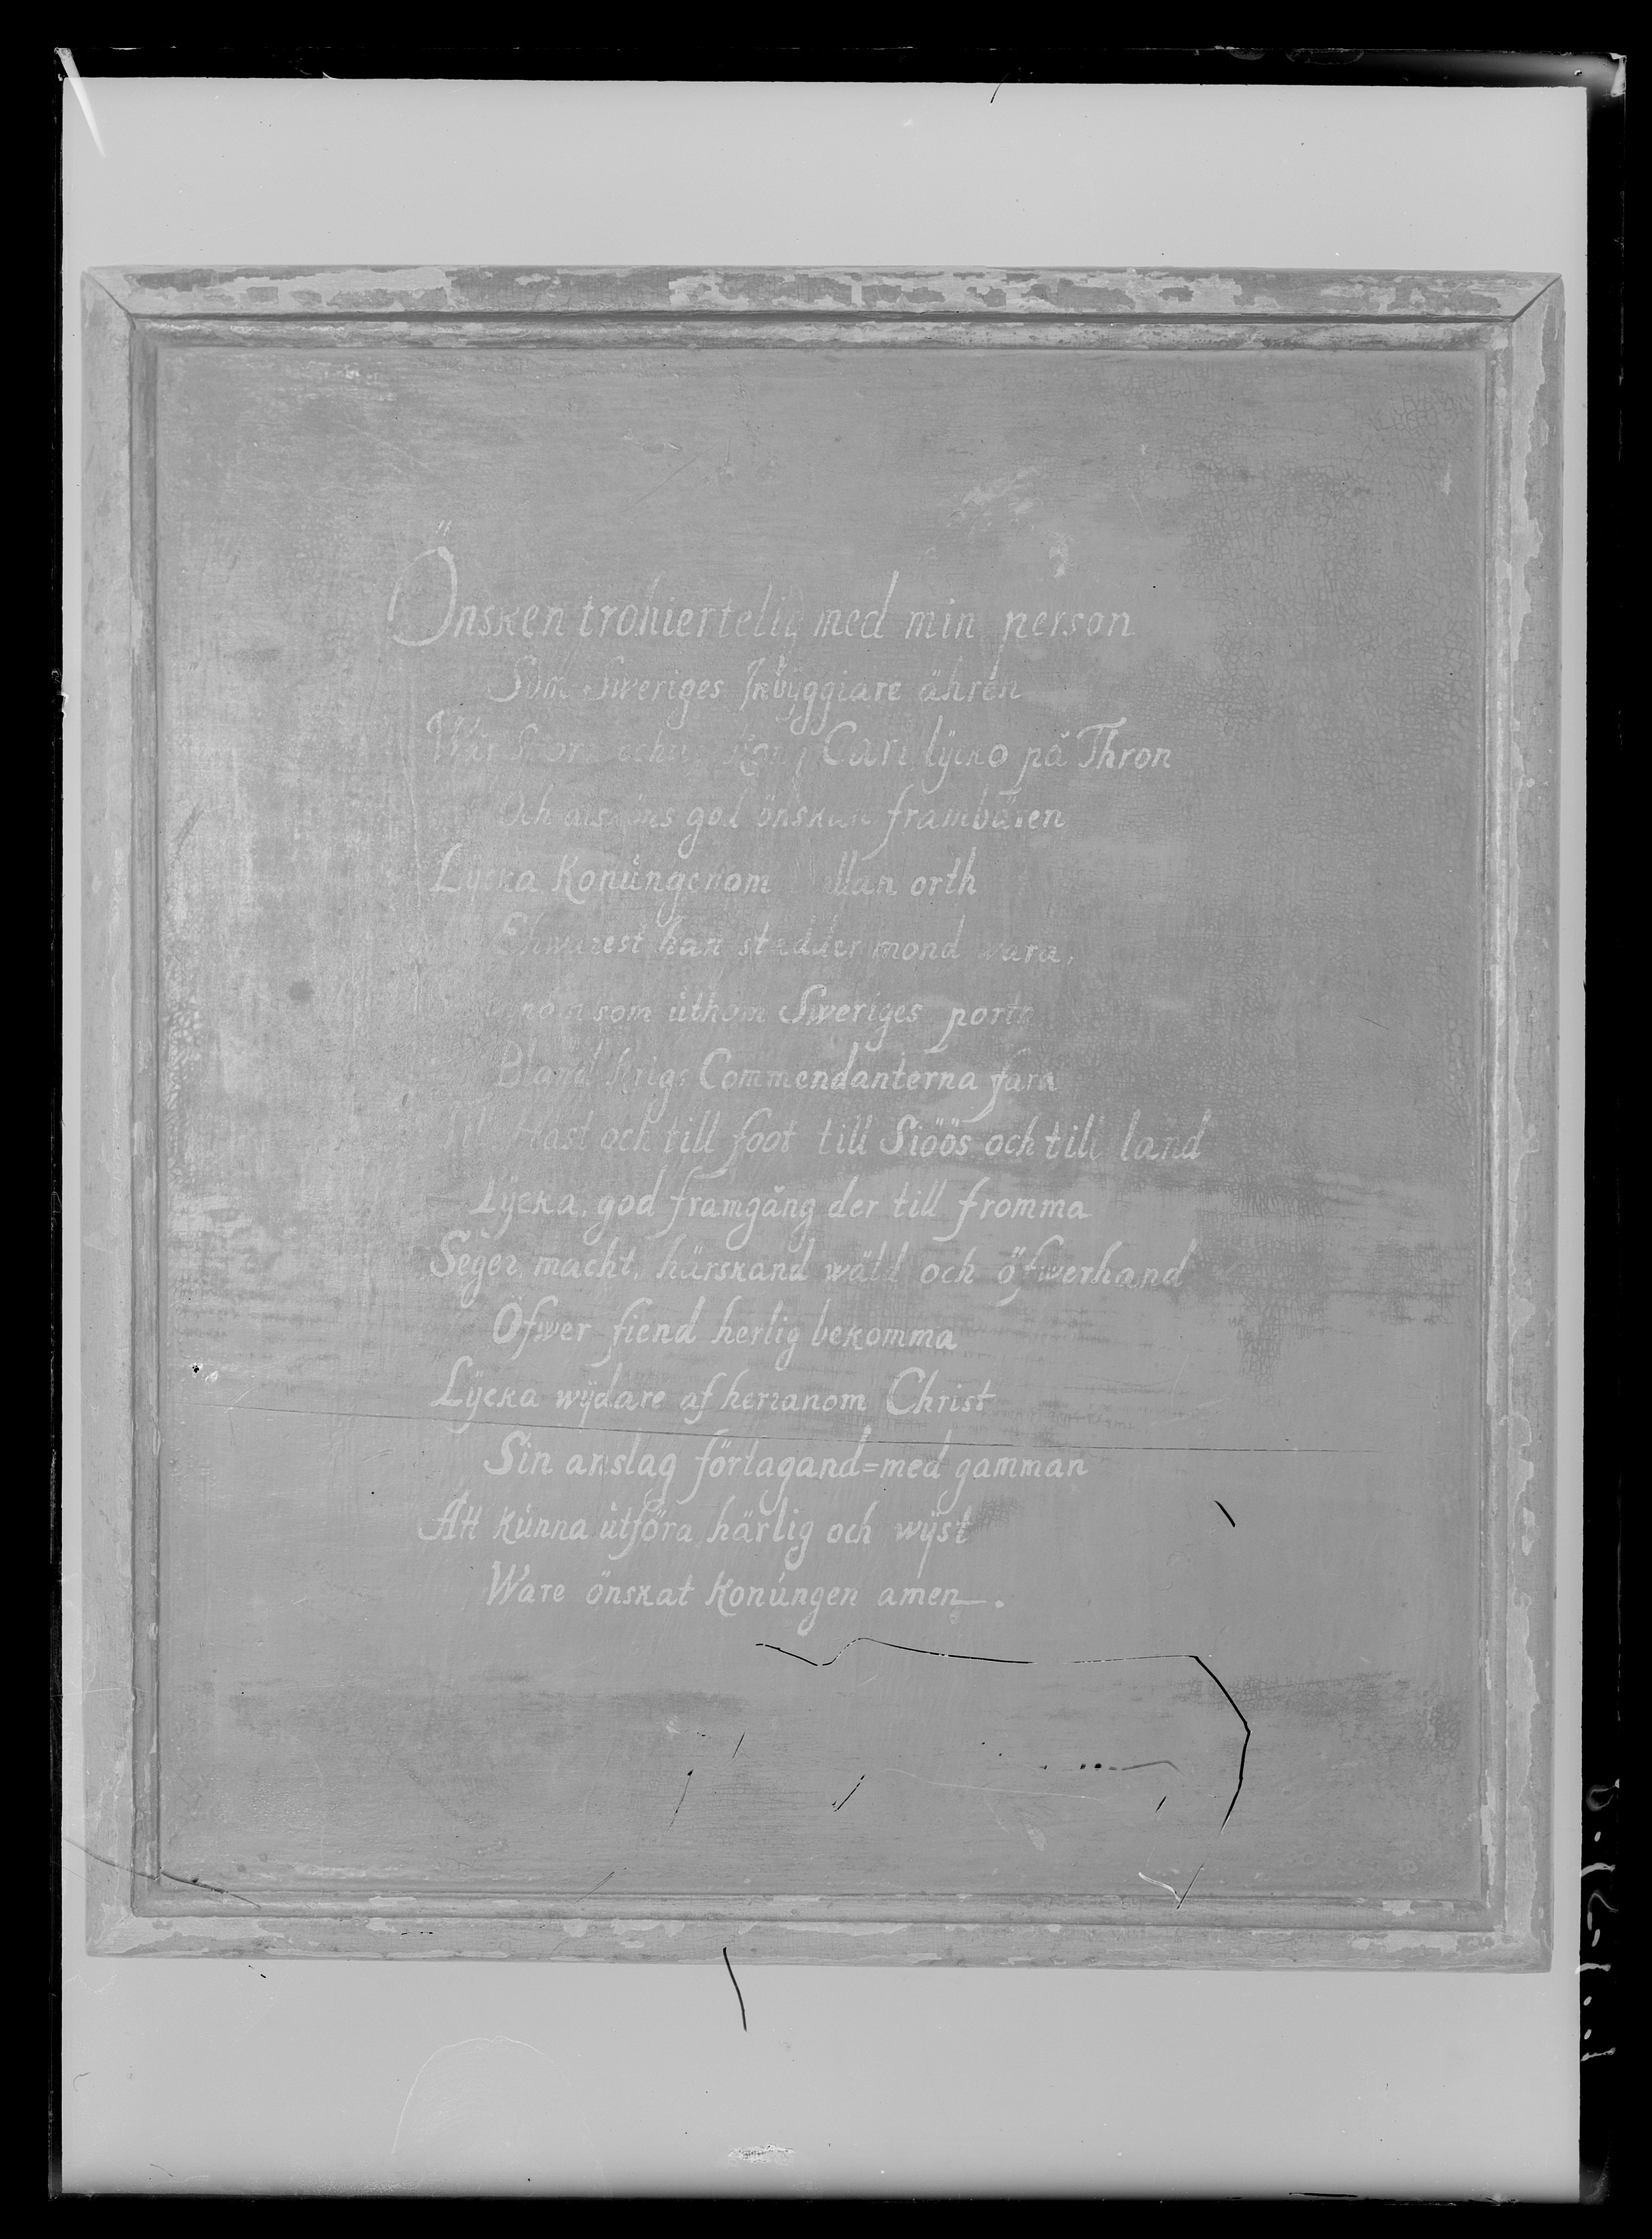 Önsken trohiertelig med min person
Som Sweriges Inbÿggiare ähren
Wår Carl lÿcko på Thron
Och god önskan frambären
Lÿcka Konúngenom allan orth
Ehwarest han stadder mond wara,
som úthom Sweriges porte
Bland Krigs Commendanterna fara
Till Häst och till foot till Siöös och till land
Lÿcka, god framgång der till fromma
Seger, macht, härskand wäld och öfwerhand
Öfwer fiend herlig bekomma
Lÿcka wÿdare af herranom Christ
Sin anslag förtagand=med gamman
Att kúnna útföra härlig och wÿst
Ware önskat Konúngen amen.